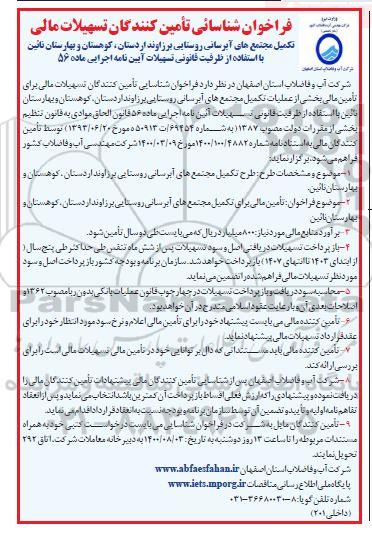 فراخوان شناسائی تأمین کنندگان تسهیلات مالی
تکمیل مجتمع های آبرسانی روستایی برزاوند اردستان ، کوهستان و بهارستان نائین
با استفاده از ظرفیت قانونی تسهیلات آیین نامه اجرایی ماده ۵۶
شرکت آب و فاضلاب استان اصفهان
شرکت آب و فاضلاب استان اصفهان در نظر دارد فراخوان شناسایی تأمین کنندگان تسهیلات مالی برای
تأمین مالی بخشی از عملیات تکمیل مجتمع های آبرسانی روستایی برزاوند اردستان ، کوهستان و بهارستان
نائین با استفاده از ظرفیت قانونی تسهیلات آئین نامه اجرایی ماده ۵۶ قانون الحاق موادی به قانون تنظیم
بخشی از مقررات دولت مصوب ۱۳۸۷ (به شماره ۶۹۴۵۴/ت۵۰۹۱۳ه مورخ ۱۳۹۳/۰۶/۲۰) توسط تأمین
کنندگان مالی به استناد نامه شماره ۱۴۰۰/۱۰۰/۴۸۸۲ مورخ ۱۴۰۰/۰۳/۰۹ شرکت مهندسی آب و فاضلاب کشور
فراهم می‌شود، برگزار نماید:
۱- موضوع و مشخصات طرح: طرح تکمیل مجتمع های آبرسانی روستایی برزاوند اردستان ، کوهستان و
بهارستان نائین.
۲- موضوع فراخوان: تأمین مالی برای تکمیل مجتمع های آبرسانی روستایی برزاوند اردستان ، کوهستان و
بهارستان نائین
۳- برآورد منابع مالی مورد نیاز: ۸۰۰ میلیارد ریال که می بایست طی دو سال تأمین شود.
۴- بازپرداخت تسهیلات دریافتی اصل و سود تسهیلات پس از شش ماه تنفس طی حداکثر طی پنج سال (
از ابتدای ۱۴۰۳ تا انتهای ۱۴۰۷) بازپرداخت خواهد شد. سازمان برنامه و بودجه کشور بازپرداخت اصل و سود
مورد نظر تسهیلات مالی فراهم شده را تضمین می نماید.
۵- محاسبه سود دریافت و بازپرداخت تسهیلات در چهارچوب قانون عملیات بانکی بدون ربا مصوب ۱۳۶۲ و
اصلاحات بعدی آن و با رعایت عقود اسلامی مندرج در آن خواهد بود.
۶- تأمین کننده مالی می بایست پیشنهاد خود را برای تأمین مالی اعلام و نرخ سود مورد انتظار خود را برای
عقد قرارداد تسهیلات مالی پیشنهاد نماید.
۷- تأمین کننده مالی باید مستنداتی که دال بر توانایی خود در تأمین مالی تسهیلات مالی است را برای
بررسی ارائه کند.
۸- شرکت آب و فاضلاب اصفهان پس از شناسایی تأمین کنندگان مالی پیشنهادات تأمین کنندگان مالی را
دریافت نموده و پیشنهادی را که ارزش فعلی اقساط بازپرداخت آن کمترین باشد انتخاب می نماید و پس از انعقاد
تفاهم نامه اولیه و تأیید و تضمین آن توسط سازمان برنامه و بودجه نسبت به انعقاد قرارداد اقدام می نماید.
۹- تأمین کنندگان مایل به شرکت در فراخوان شناسایی می بایست درخواست کتبی خود به همراه
مستندات مربوطه را تا ساعت ۱۳ روز دوشنبه به تاریخ: ۱۴۰۰/۰۸/۰۳ به دبیرخانه معاملات شرکت، اتاق ۲۹۲
تحویل نمایند.
شرکت آب و فاضلاب استان اصفهان www.abfaesfahan.ir
پایگاه ملی اطلاع رسانی مناقصات www.iets.mporg.ir
شماره تلفن گویا: ۸-۰۳۱-۳۶۶۸۰۰۳۰
(داخلی ۲۰۱)